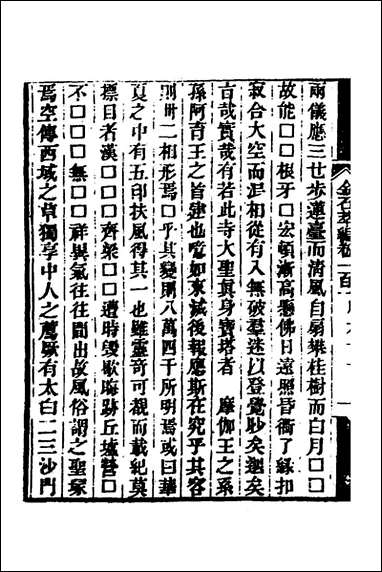 兩儀應三廿步蓮臺而清風自扇攀桂樹而白月□□
故能□□根牙□宏頓漸高懸佛日遠照昏衢了緣扣
寂合大空而混相從入無破羣迷以登覺妙矣邈矣
言哉實哉有若此寺大聖眞身寶塔者　摩伽王之系
孫阿育王之首建也噫如來滅後報應斯在究乎其容
則卅二相形焉□乎其變則八萬四千所明焉或曰華
夏之中有五印扶風得其一也雖靈奇可覩而載紀莫
標目者漢□□□齊梁□□遭時毀歇晦跡丘墟嘗□
不□□□無□□祥異氣往往間出故風俗謂之聖冢
焉空傳西域之草獨享中人之薦厥有太白二三沙門
金石萃編卷一百一